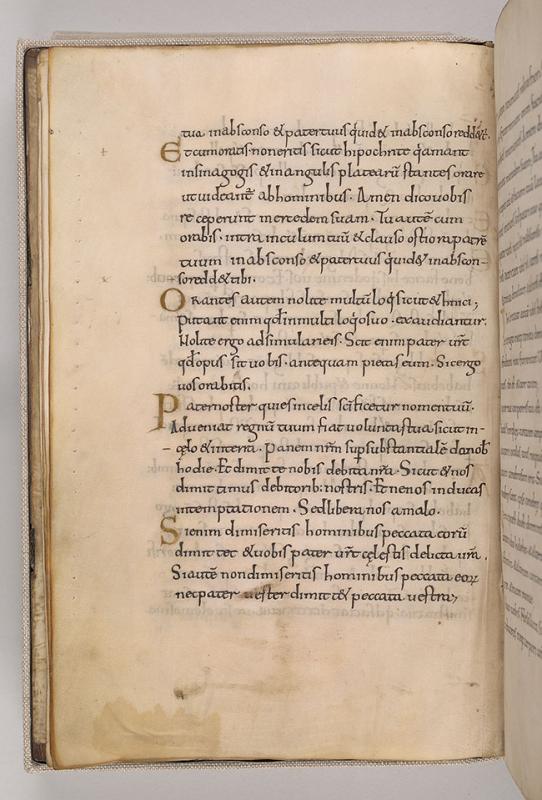 tua inabsconso & pater tuus quid& inabsconso redd&
Et cum oratis non eritis sicut hipochrite q̇ amant
insinagogis & in angulis platearū stantes orare
ut uideant᷑ ab hominibus. Amen dico uobis
re ceperunt mercedem suam. Tu autē cum
orabis. intra inculum tuū & clauso ostio ora patrē
tuum inabsconso & pater tuus quid& inabscon-
so redd& tibi.
Orantes autem nolite multū loq̇ sicut & hnici;
Putant enim qđ in multi loq̇o suo. exaudiantur.
Nolite ergo adsimulari eis. Scit enim pater ur̄t
qđ opus sit uobis. antequam pietas eum. Sic ergo
uos orabitis.
Pater noster qui es incelis sc̄ificetur nomen tuū.
Adueniat regnū tuum fiat uoluntas tua sicut in-
cęlo & interra. Panem nr̄m supsubstantialē da nob
hodie. Et dimitte nobis debita nr̄a. Sicut & nos
dimittimus debitorib: nostris. Et ne nos inducas
intemptationem. Sed libera nos amalo.
Si enim dimiseritis hominibus peccata eorū
dimittet & uobis pater ur̄t cęlestis delicta ur̄a.
Si autē non dimiseritis hominibus peccata eoꝝ
nec pater uester dimitt& peccata uestra;